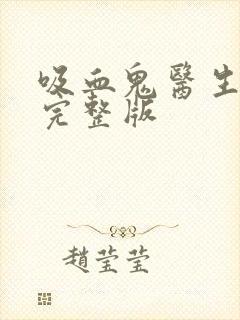 吸血鬼醫生
完整版
趙瑩瑩